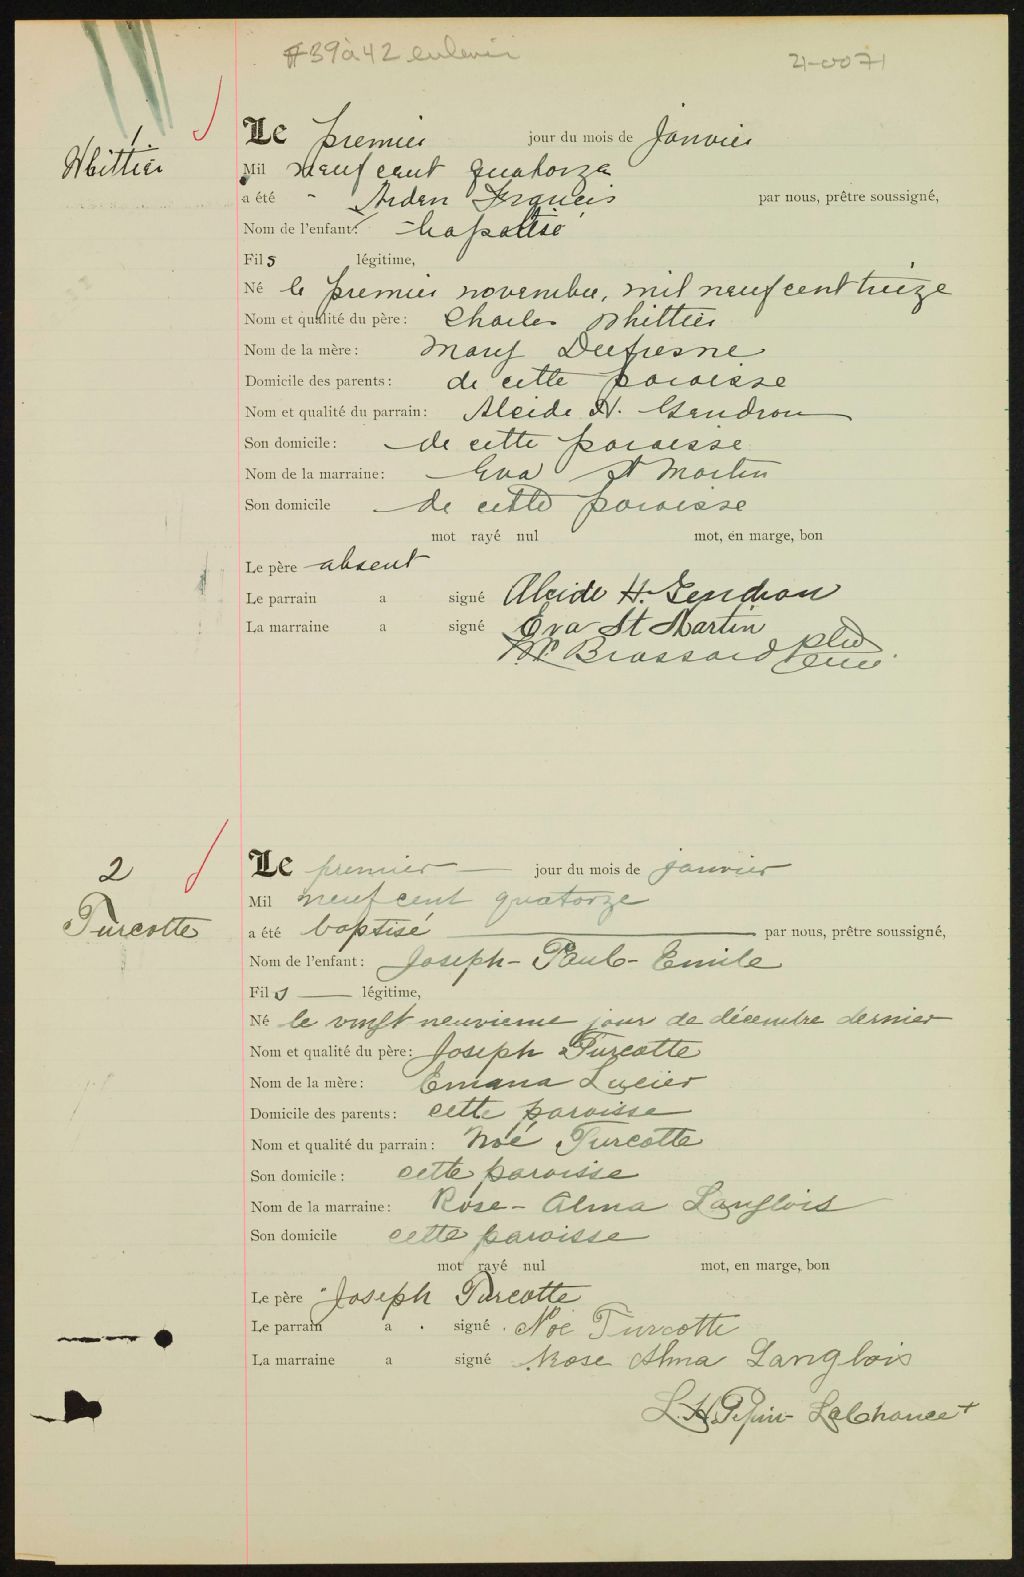 #39 à 42 enlevés
21-0071
1
Whittier
Le premier jour du mois de Janvier
Mil neuf cent quatorze
a été Arden par nous, prêtre soussigné,
Nom de l'enfant: baptisé
Fils légitime,
Né le premier novembre, mil neuf cent treize
Nom et qualité du père: Charles Whittier
Nom de la mère: Mary Dufresne
Domicile des parents: de cette paroisse
Nom et qualité du parrain: Alcide H. Gendron
Son domicile: de cette paroisse
Nom de la marraine: Eva St Martin
Son domicile de cette paroisse
mot rayé nul mot, en marge, bon
Le père absent
Le parrain a signé Alcide H. Gendron
La marraine a signé Eva St Martin
Brassard ptre
curé
2
Turcotte
Le premier jour du mois de janvier
Mil neuf cent quatorze
a été baptisé par nous, prêtre soussigné,
Nom de l'enfant: Joseph-Paul-Emile
Fils légitime,
Né le vingt neuvieme jour de décembre dernier
Nom et qualité du père: Joseph Turcotte
Nom de la mère: Emana Lucier
Domicile des parents: cette paroisse
Nom et qualité du parrain: Noé Turcotte
Son domicile: cette paroisse
Nom de la marraine: Rose-Alma Langlois
Son domicile cette paroisse
mot rayé nul mot, en marge, bon
Le père Joseph Turcotte
Le parrain a signé Noé Turcotte
La marraine a signé Rose Alma Langlois
L. H. Pepin-LaChance